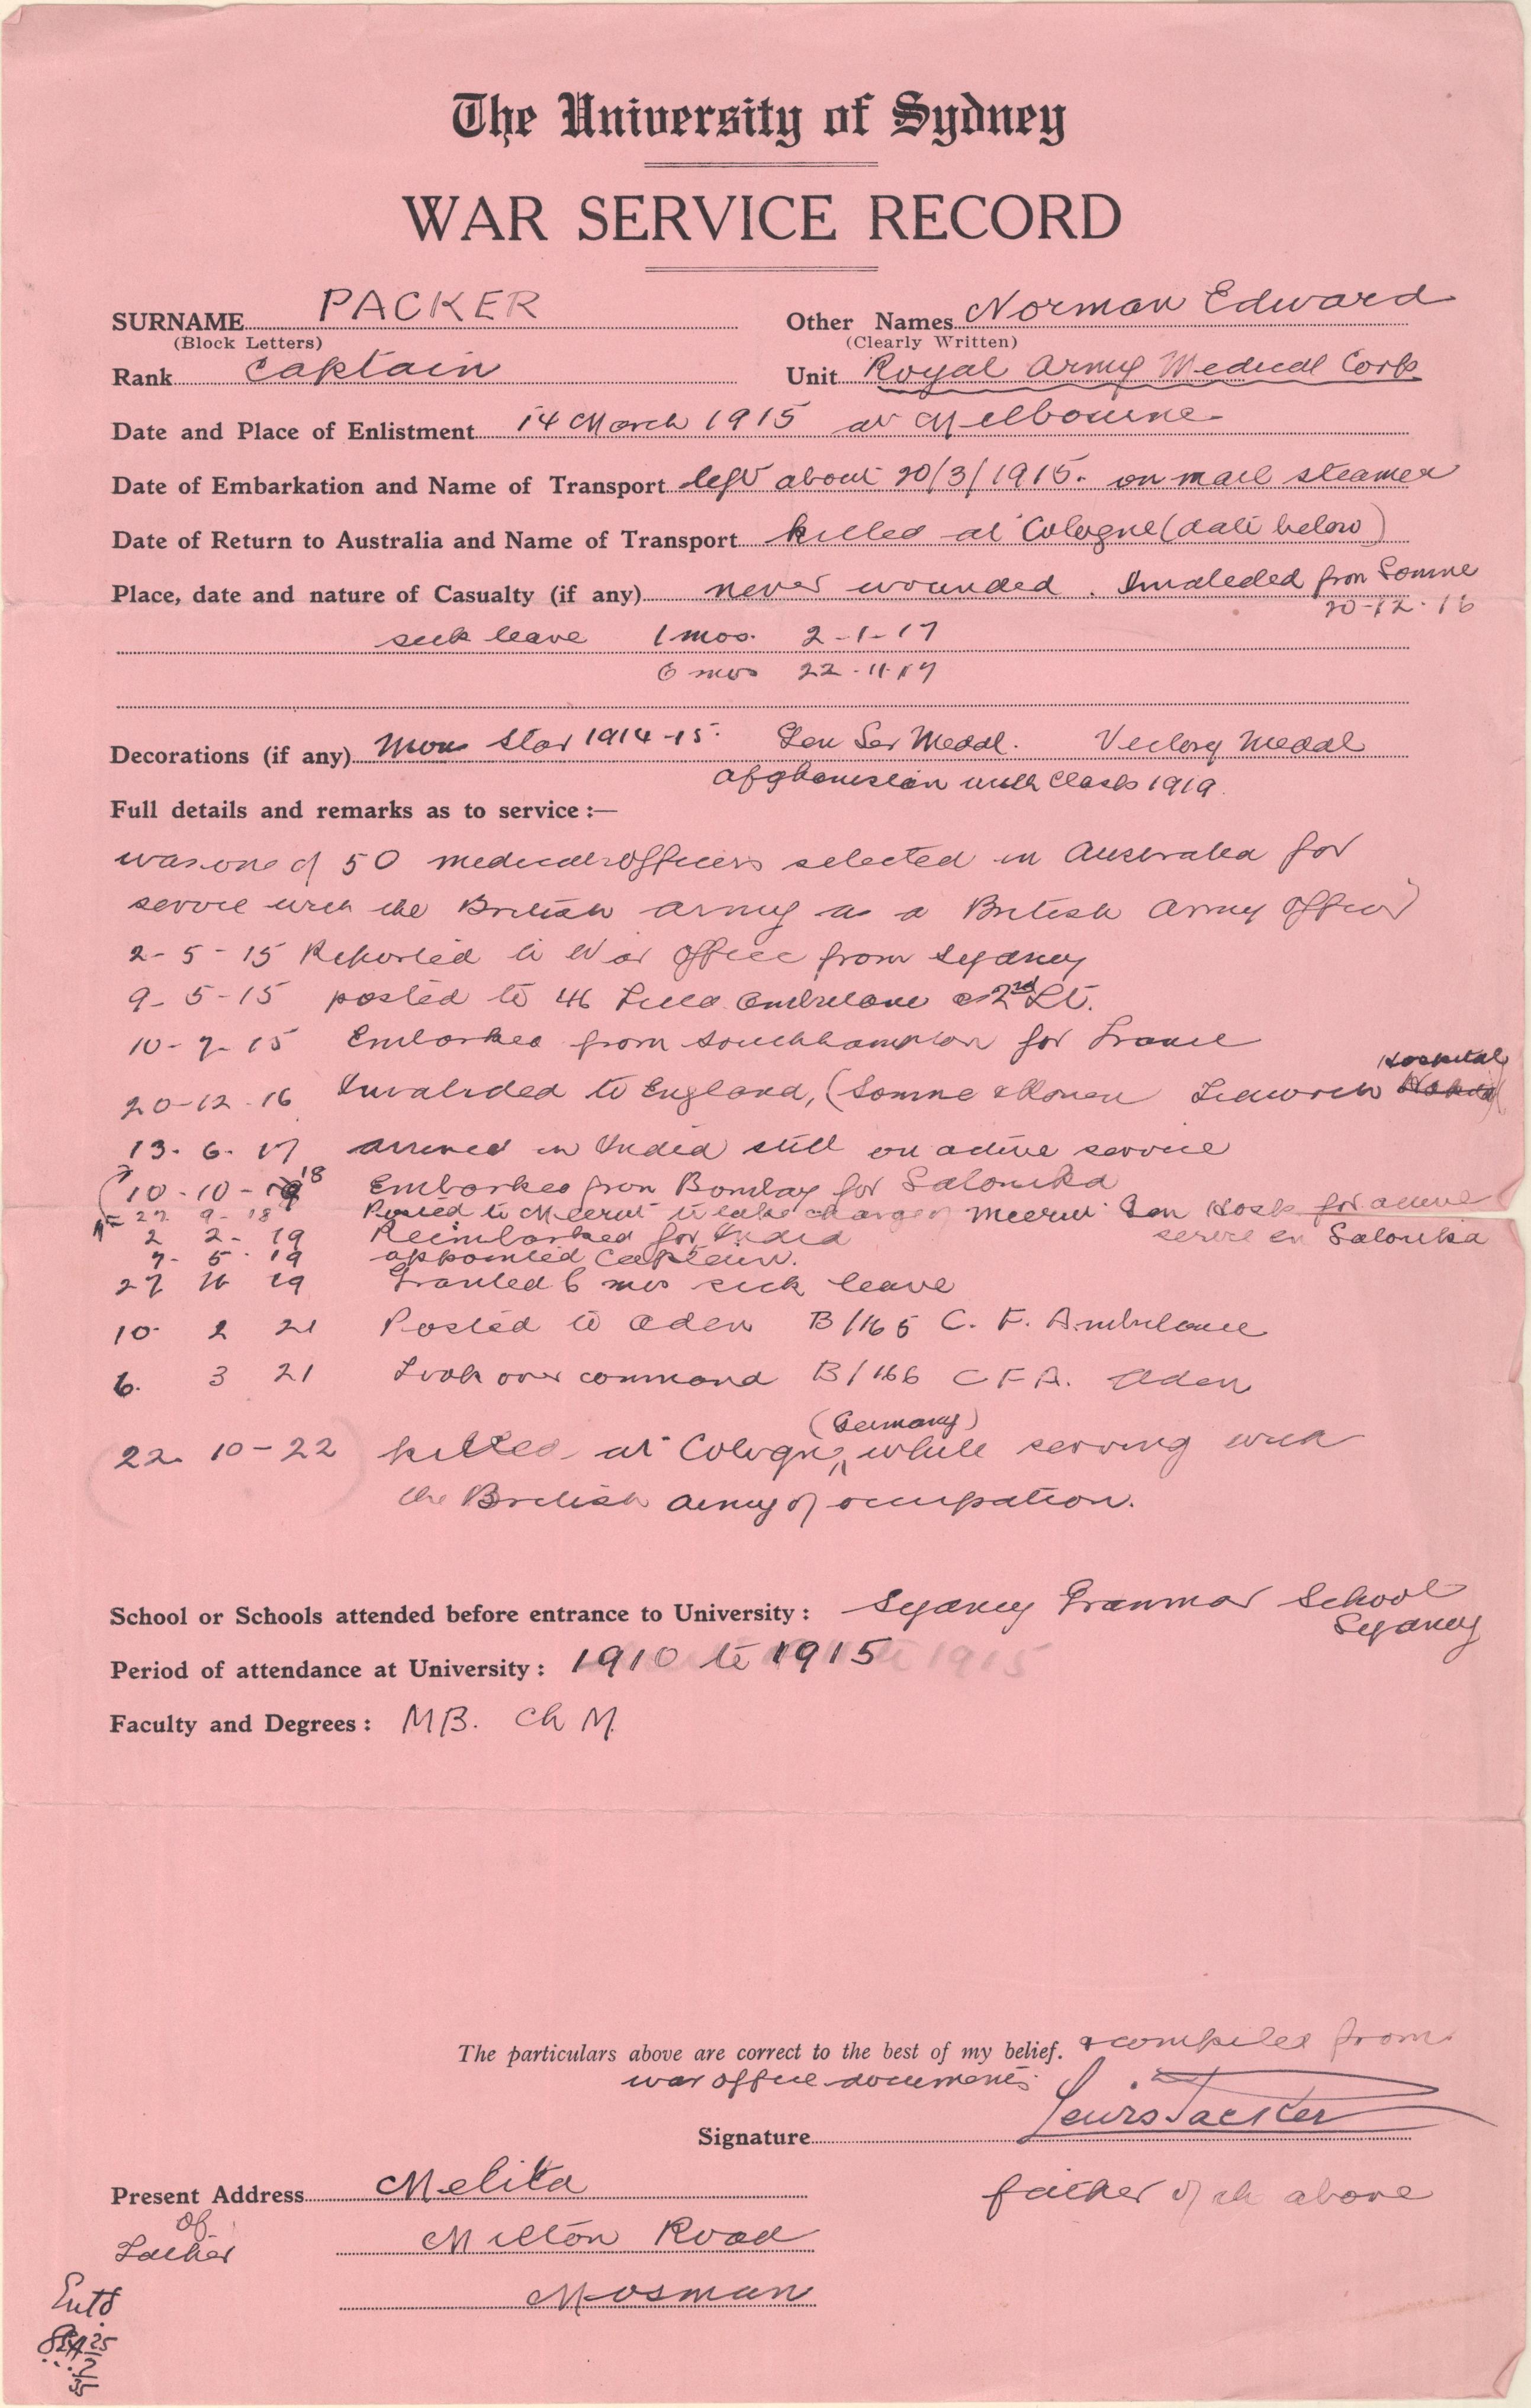 The University of Sydney
WAR SERVICE RECORD
SURNAME PACKER Other Names Norman Edward
(Block Letters) (Clearly Written)
Rank Captain Unit Royal Army Medical Corps
Date and Place of Enlistment 14 March 1915 at Melbourne
Date of Embarkation and Name of Transport left about 20/3/1915. on mail steamer
Date of Return to Australia and Name of Transport killed at Cologne (date below)
Place, date and nature of Casualty (if any) never wounded. Invalided from Somme
20-12-16
sick leave 1 mos. 2-1-17
6 mos 22-11-19
Decorations (if any) Mons Star 1914-15. Gen Ser Medal. Victory Medal
Afghanistan with Clasp 1919.
Full details and remarks as to service :—
was one of 50 medical officers selected in Australia for
service with the British army as a British Army Officer
2-5-15 Reported to War Office from Sydney
9-5-15 posted to 46 Field Ambulance as 2nd Lt.
10-7-15 Embarked from Southhampton for France
Hospital
20-12-16 Invalided to England, (Somme & Rouen
13-6-17 arrived in India still on active service
10-10-18 Embarked from Bombay for Salonika
27 9-18 Posted to Meerut to take charge of Meerut Gen Hosp for active
service in Salonika
2 2-19 Reimbarked for India
7-5-19 appointed Captain.
27 11 19 Granted 6 mos sick leave
10 2 21 Posted to Aden B/165 C. F. Ambulance
6. 3 21 Took over command B/166 C F A. Aden
(Germany)
22. 10-22 killed at Cologne, while serving with
the British army of occupation.
School or Schools attended before entrance to University : Sydney Grammar School
Sydney
Period of attendance at University : 1910 to 1915
Faculty and Degrees : MB. Ch M.
The particulars above are correct to the best of my belief. & compiled from
war office documents
Signature Lewis Packer
Present Address Melita father of the above
of
Father
Milton Road
Mosman
Entd